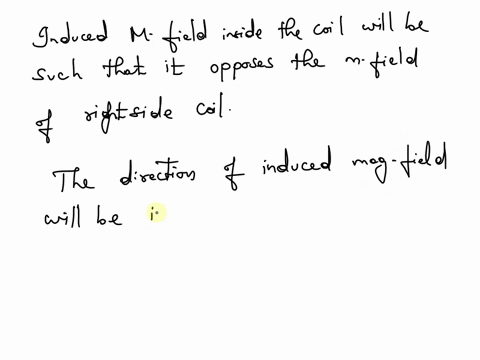 Induced M. field inside the coil will be
such that it opposes the m. field
of rightside coil.
The direction of induced mag. field
will be i